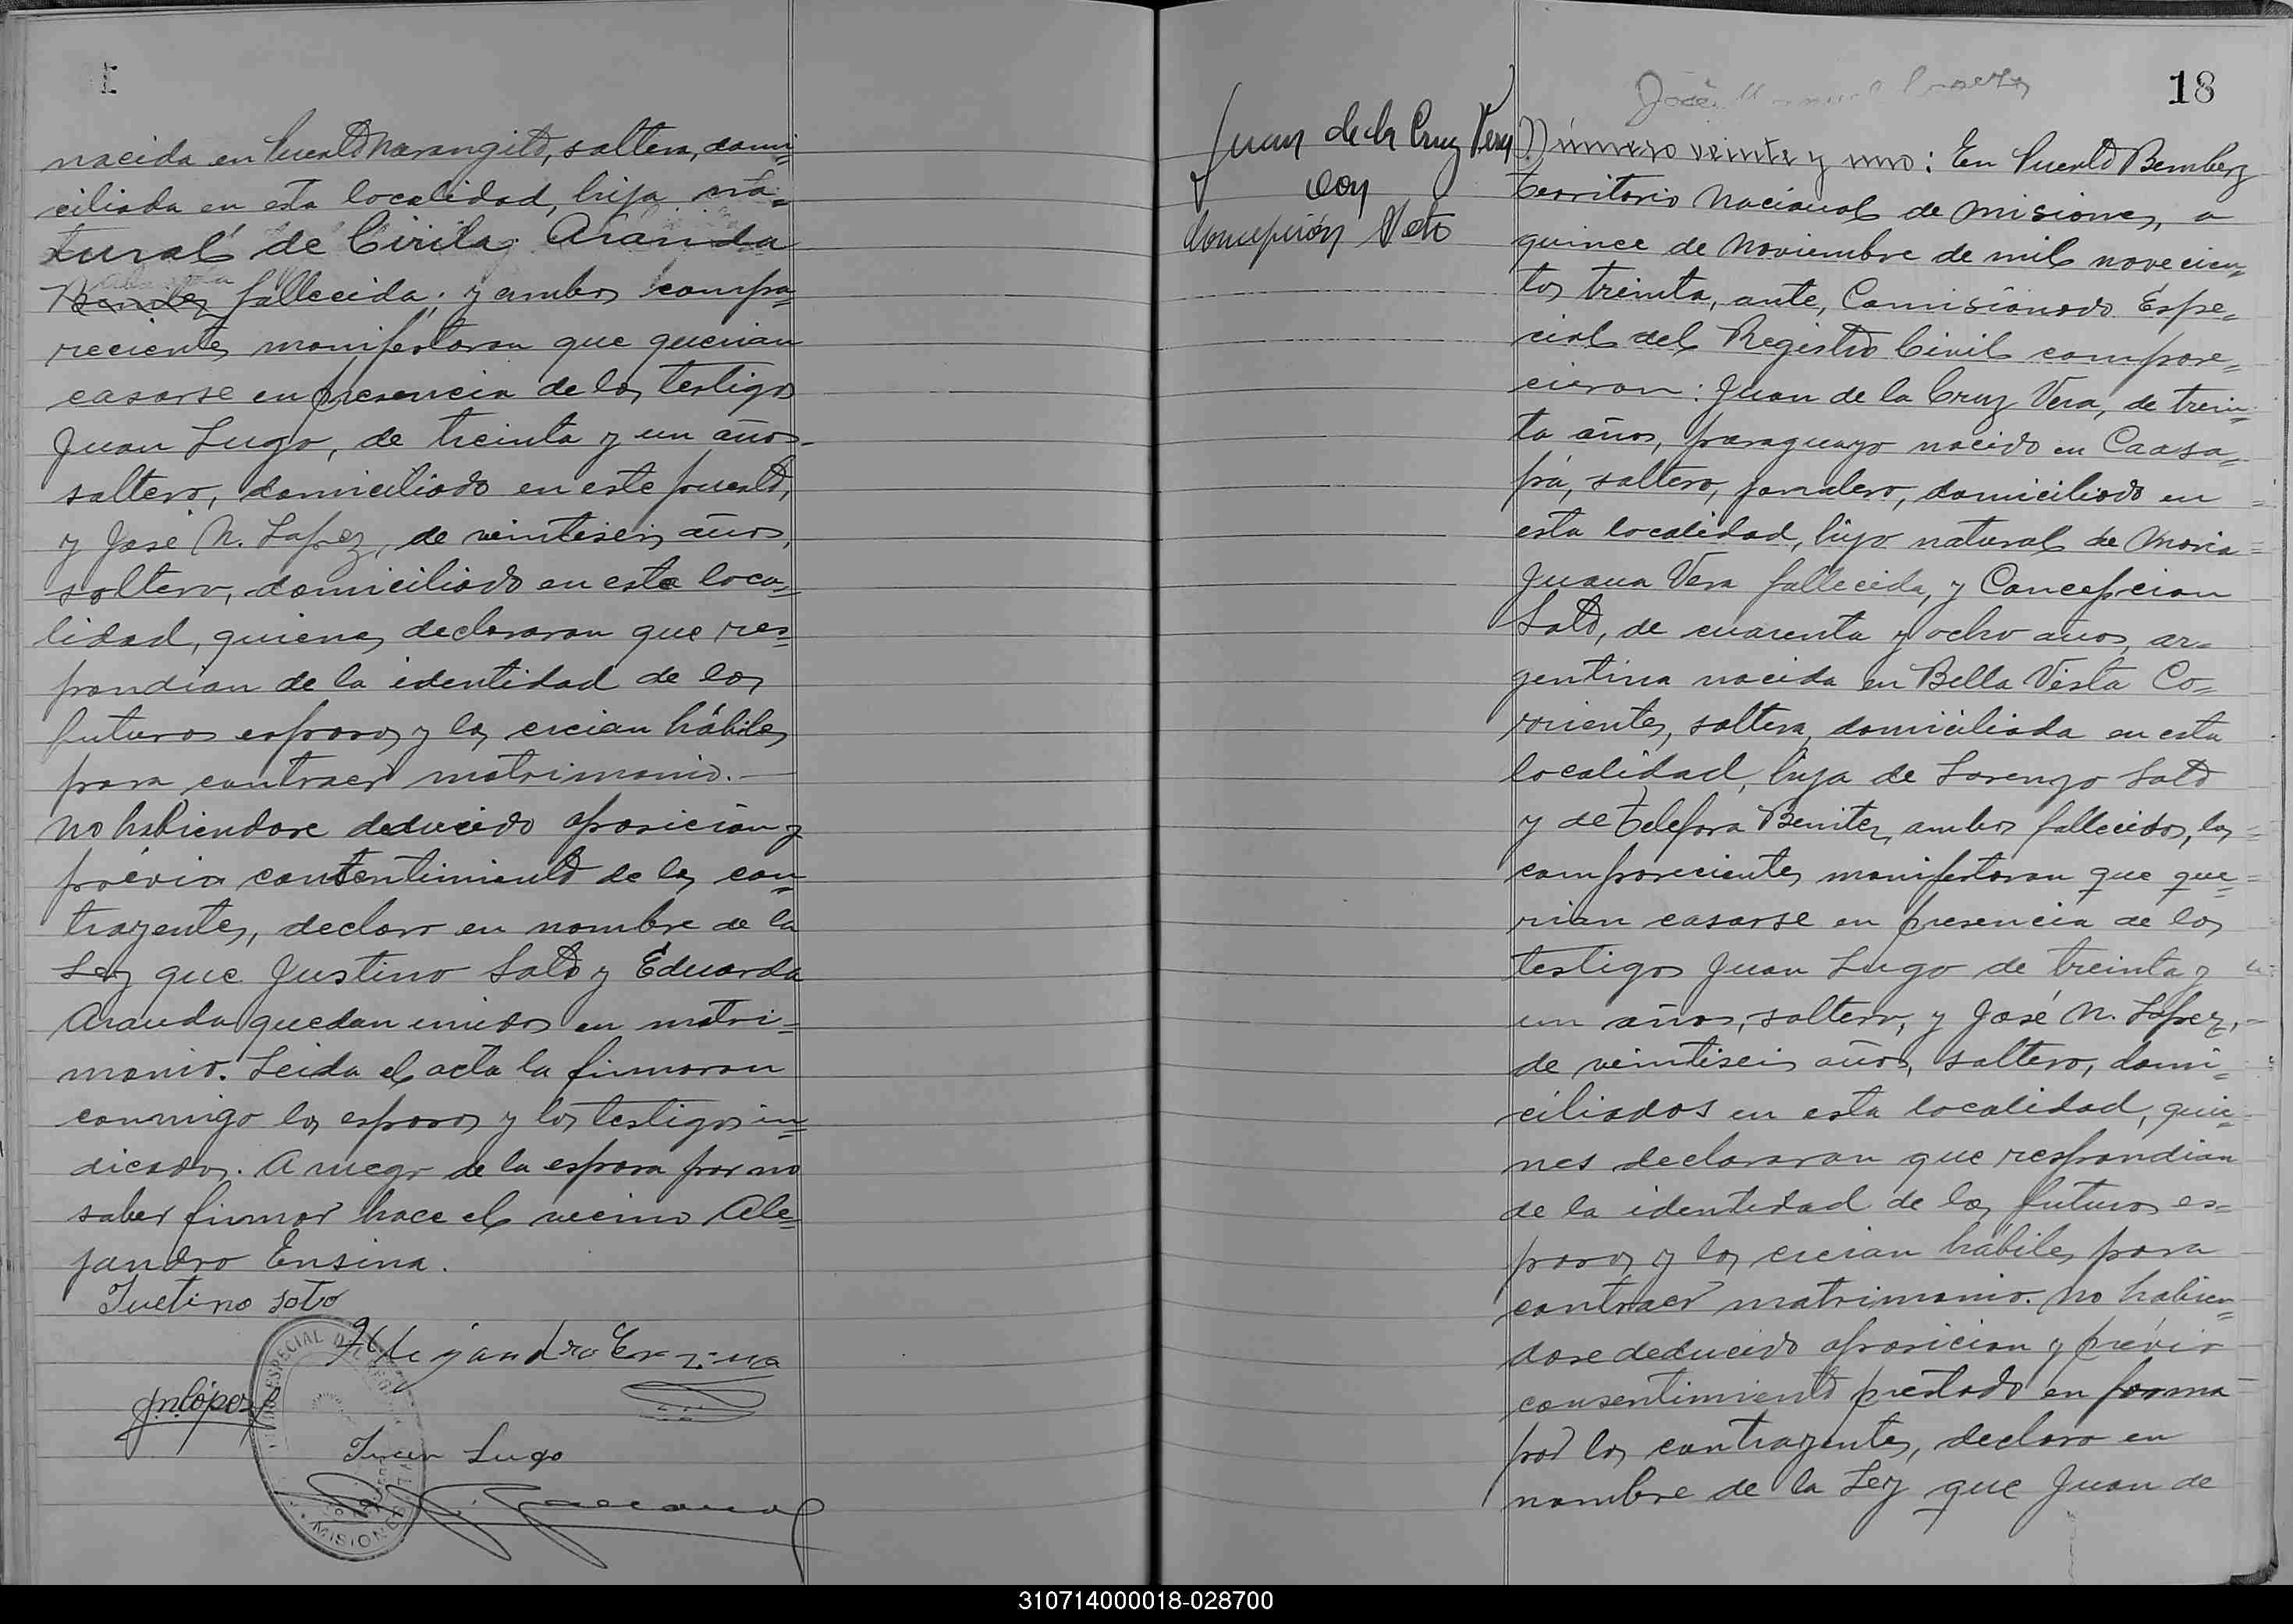 nacida en Puerto Narangito, soltera, domi=
ciliada en esta localidad, hija na=
tural de Cirila Aranda
Benitez fallecida; y ambos compa=
recientes manifestaron que querian
casarse en presencia de los testigos
Juan Lugo, de treinta y un años
soltero, domiciliado en este puerto,
y José N. Lopez, de veintiseis años,
soltero, domiciliado en esta loca=
lidad, quienes declararon que res=
pondian de la identidad de los
futuros esposos y los creian hábiles
para contraer matrimonio.—
No habiendose deducido oposición y
prévio consentimiento de los con=
trayentes, declaro en nombre de la
Ley que Justino Soto y Eduarda
Aranda quedan unidos en matri=
monio. Leida el acta la firmaron
conmigo los esposos y los testigos in=
dicados. A ruego de la esposa por no
saber firmar hace el vecino Ale=
jandro Ensina.
Justino Soto
Alejandro Ensina
J.N. López
Juan Lugo
ESPECIAL
MISIONES
18
Juan de la Cruz Vera
con
Concepción Soto
José
Número veinte y uno: En Puerto Bemberg
Territorio Nacional de Misiones, a
quince de Noviembre de mil novecien=
tos treinta, ante, Comisionado Espe=
cial del Registro Civil compare=
cieron: Juan de la Cruz Vera, de trein=
ta años, paraguayo nacido en Caasa=
pá, soltero, jornalero, domiciliado en
esta localidad, hijo natural de Maria
Juana Vera fallecida, y Concepcion
Soto, de cuarenta y ocho años, ar=
gentina nacida en Bella Vista Co=
rrientes, soltera, domiciliada en esta
localidad, hija de Lorenzo Soto
y de Telefora Benitez, ambos fallecidos, los
comparecientes manifestaron que que=
rian casarse en presencia de los
testigos Juan Lugo de treinta y
un años, soltero, y José N. Lopez,
de veintiseis años, soltero, domi=
ciliados en esta localidad, quie=
nes declararon que respondian
de la identidad de los futuros es=
posos y los creian hábiles para
contraer matrimonio. No habien=
dose deducido oposicion y prévio
consentimiento prestado en forma
por los contrayentes, declaro en
nombre de la Ley que Juan de
310714000018-028700